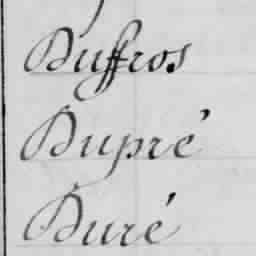 Duffros
Dupré
Duré